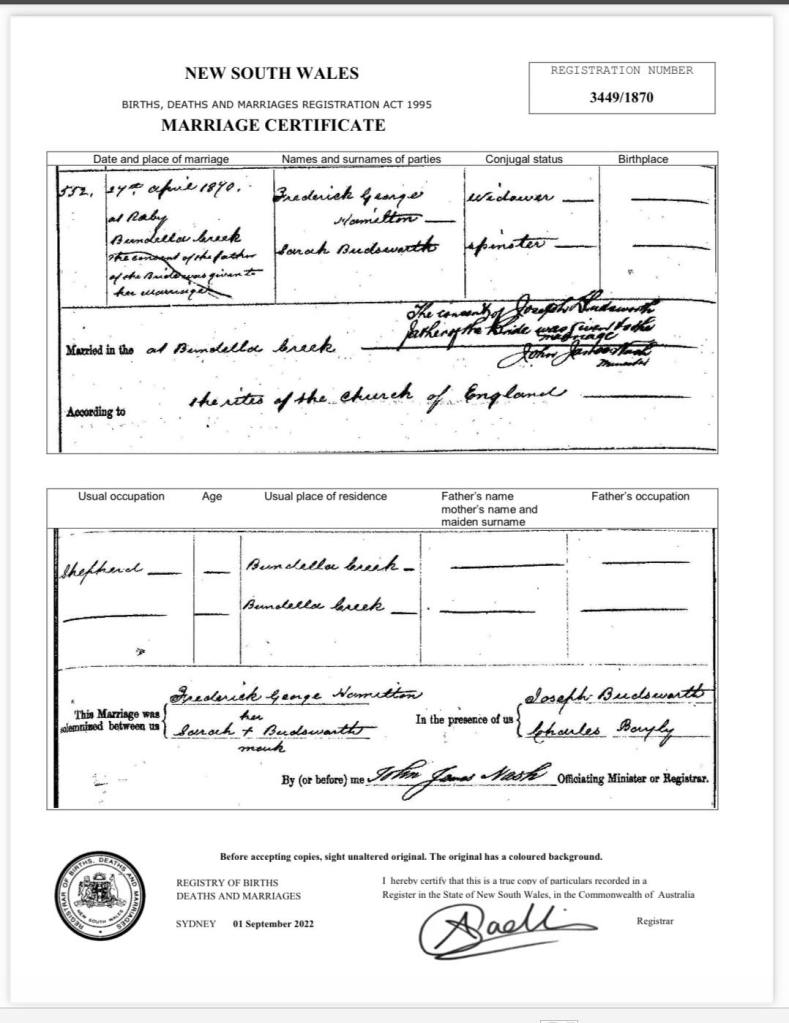 NEW SOUTH WALES
REGISTRATION NUMBER
3449/1870
BIRTHS, DEATHS AND MARRIAGES REGISTRATION ACT 1995
MARRIAGE CERTIFICATE
Date and place of marriage Names and surnames of parties Conjugal status Birthplace
552. 27th april 1870. Frederick George Widower
at Raby Hamilton
Bundella Creek Sarah Budsworth Spinster
The consent of the father
of the Bride was given to
her marriage
The consent of Joseph Budsworth
father of the Bride was given to the
marriage
Married in the at Bundella Creek
John James Nash
According to the rites of the Church of England
Usual occupation Age Usual place of residence Father's name Father's occupation
mother's name and
maiden surname
Shepherd Bundella Creek
Bundella Creek
Frederick George Hamilton Joseph Budsworth
This Marriage was her In the presence of us
solemnized between us Sarah + Budsworth Charles Bayly
mark
By (or before) me John James Nash Officiating Minister or Registrar.
Before accepting copies, sight unaltered original. The original has a coloured background.
REGISTRY OF BIRTHS
DEATHS AND MARRIAGES
I hereby certify that this is a true copy of particulars recorded in a
Register in the State of New South Wales, in the Commonwealth of Australia
SYDNEY 01 September 2022
Registrar
REGISTRAR OF BIRTHS, DEATHS AND MARRIAGES
NEW SOUTH WALES